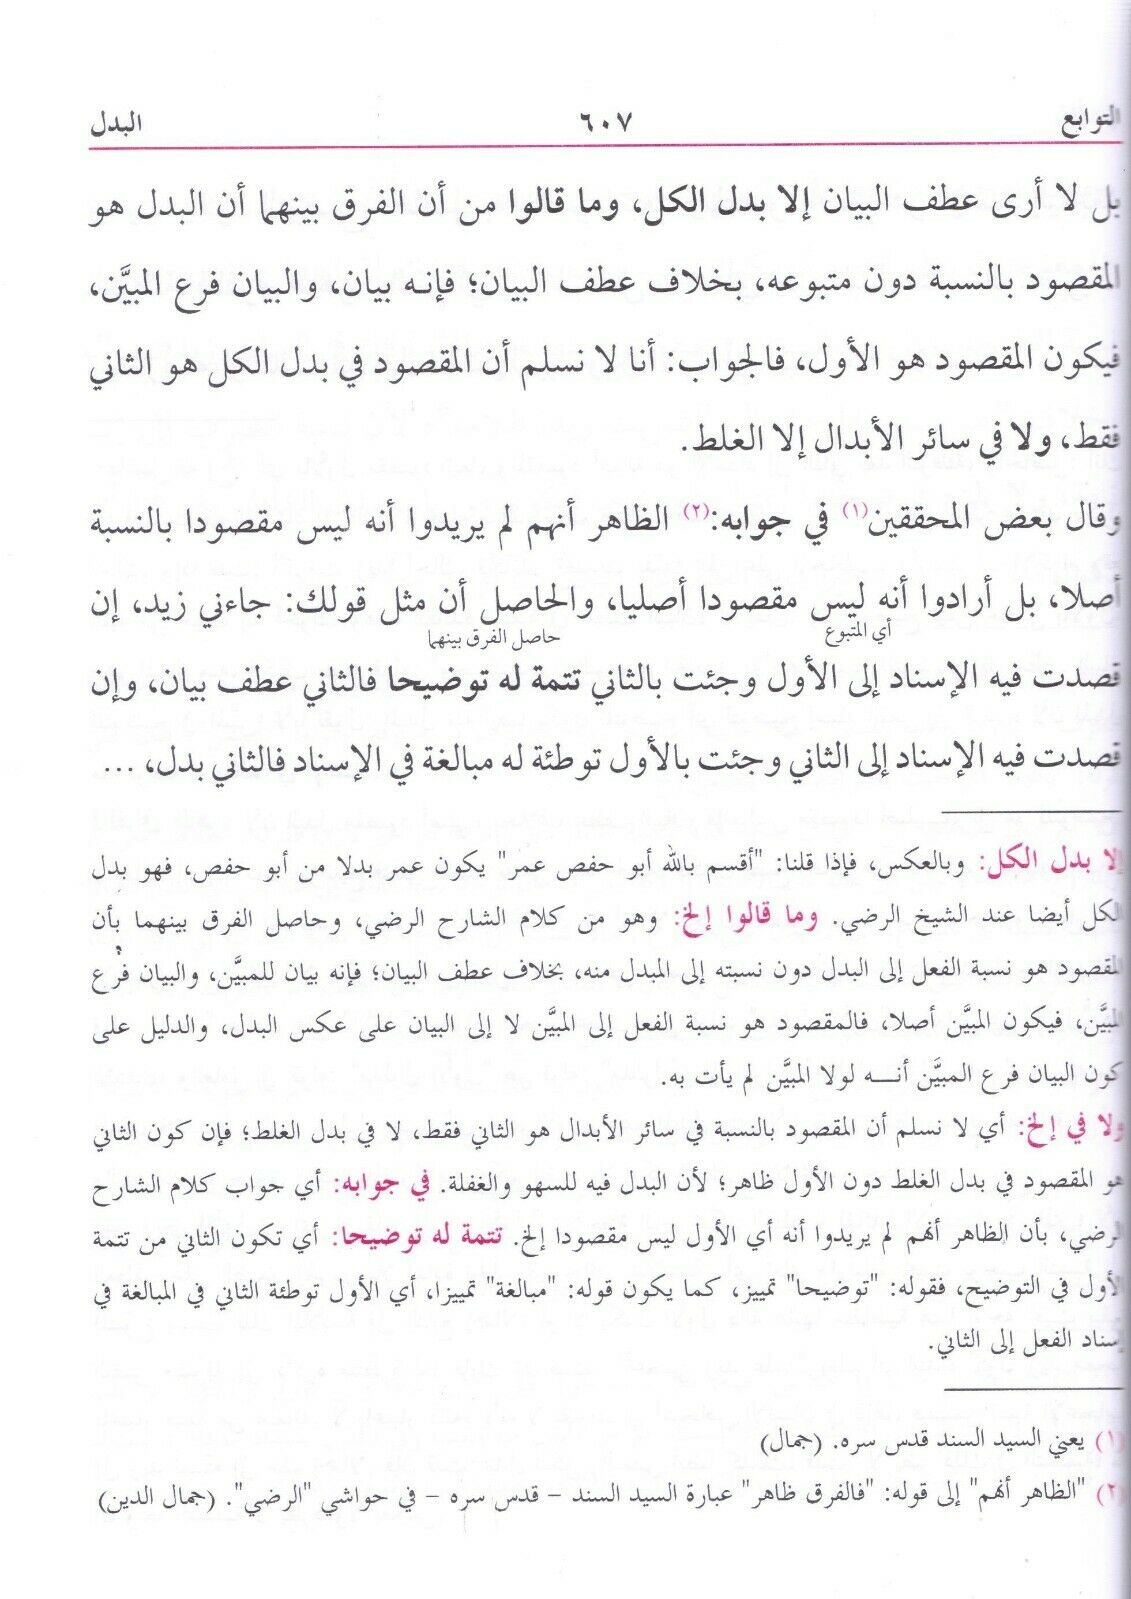 التوابع ٦٠٧ البدل
بل لا أرى عطف البيان إلا بدل الكل، وما قالوا من أن الفرق بينهما أن البدل هو
المقصود بالنسبة دون متبوعه، بخلاف عطف البيان؛ فإنه بيان، والبيان فرع المبيَّن،
فيكون المقصود هو الأول، فالجواب: أنا لا نسلم أن المقصود في بدل الكل هو الثاني
فقط، ولا في سائر الأبدال إلا الغلط.
وقال بعض المحققين(١) في جوابه:(٢) الظاهر أنهم لم يريدوا أنه ليس مقصودا بالنسبة
أصلا، بل أرادوا أنه ليس مقصودا أصليا، والحاصل أن مثل قولك: جاءني زيد، إن
أي المتبوع حاصل الفرق بينهما
قصدت فيه الإسناد إلى الأول وجئت بالثاني تتمة له توضيحا فالثاني عطف بيان، وإن
قصدت فيه الإسناد إلى الثاني وجئت بالأول توطئة له مبالغة في الإسناد فالثاني بدل، ...
إلا بدل الكل: وبالعكس، فإذا قلنا: "أقسم بالله أبو حفص عمر" يكون عمر بدلا من أبو حفص، فهو بدل
الكل أيضا عند الشيخ الرضي. وما قالوا إلخ: وهو من كلام الشارح الرضي، وحاصل الفرق بينهما بأن
المقصود هو نسبة الفعل إلى البدل دون نسبته إلى المبدل منه، بخلاف عطف البيان؛ فإنه بيان للمبيَّن، والبيان فرع
المبيَّن، فيكون المبيَّن أصلا، فالمقصود هو نسبة الفعل إلى المبيَّن لا إلى البيان على عكس البدل، والدليل على
كون البيان فرع المبيَّن أنـــه لولا المبيَّن لم يأت به.
ولا في إلخ: أي لا نسلم أن المقصود بالنسبة في سائر الأبدال هو الثاني فقط، لا في بدل الغلط؛ فإن كون الثاني
هو المقصود في بدل الغلط دون الأول ظاهر؛ لأن البدل فيه للسهو والغفلة. في جوابه: أي جواب كلام الشارح
الرضي، بأن الظاهر أنهم لم يريدوا أنه أي الأول ليس مقصودا إلخ. تتمة له توضيحا: أي تكون الثاني من تتمة
الأول في التوضيح، فقوله: "توضيحا" تمييز، كما يكون قوله: "مبالغة" تمييزا، أي الأول توطئة الثاني في المبالغة في
إسناد الفعل إلى الثاني.
(١) يعني السيد السند قدس سره. (جمال)
(٢) "الظاهر أنهم" إلى قوله: "فالفرق ظاهر" عبارة السيد السند – قدس سره – في حواشي "الرضي". (جمال الدين)